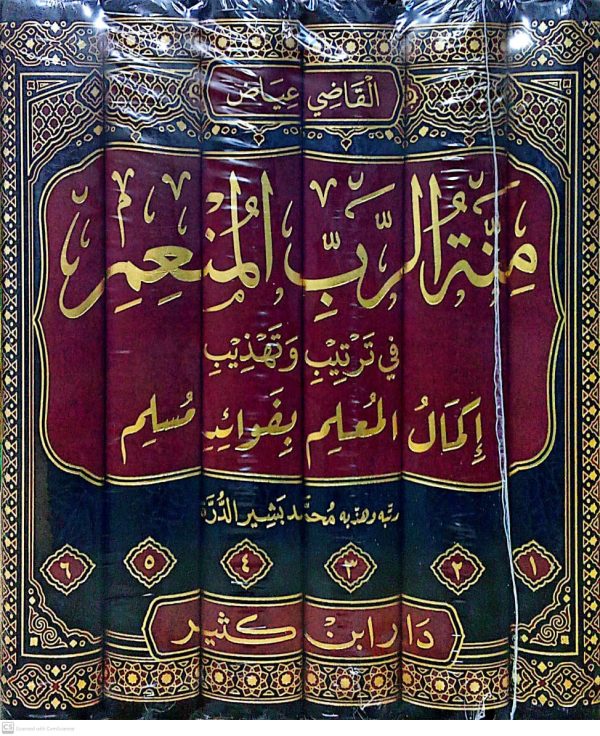 القاضي عياض
مِنَّةُ الرَّبِّ المُنْعِمِ
في تَرْتِيبِ وَتَهْذِيبِ
إِكمَالُ المُعلِمِ بِفَوائِدِ مُسلِم
رتبه وهذبه محمد بشير الدرة
١ ٢ ٣ ٤ ٥ ٦
دار ابن كثير
CS Scanned with CamScanner